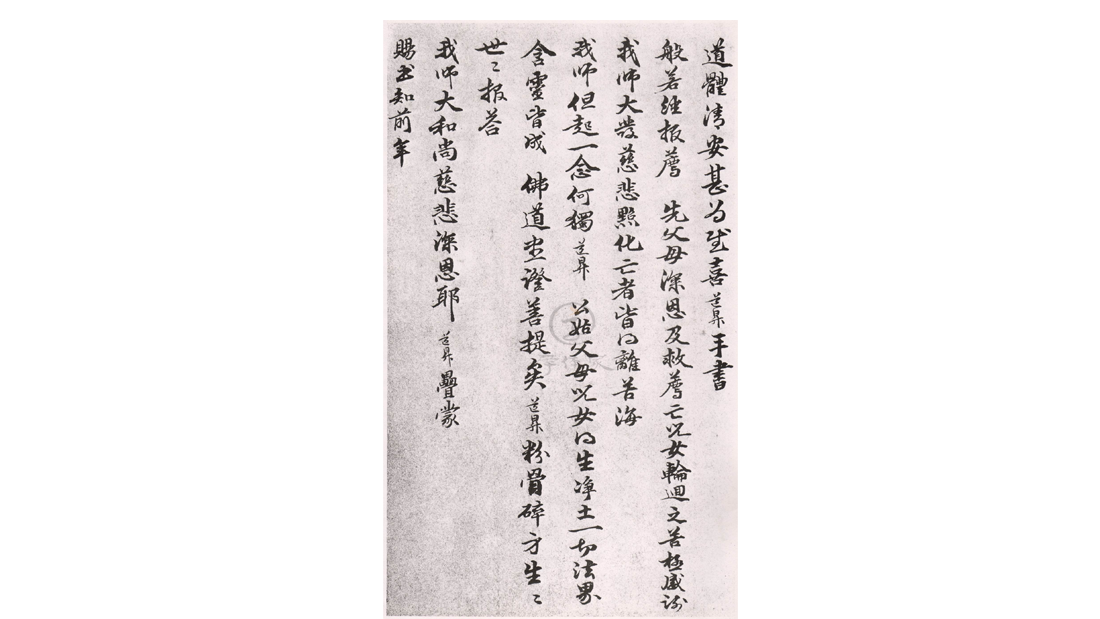 道體清安甚為慰喜道昇手書
般若經報薦 先父母深恩及救薦亡兒女輪迴之苦極感謝
我師大發慈悲點化亡者皆得離苦海
我師但起一念何獨道昇 公姑父母兒女得生淨土一切法界
含靈皆成 佛道坐證善提矣道昇粉骨碎身生〻
世〻報答
我師大和尚慈悲深恩耶 道昇疊蒙
賜書知前年